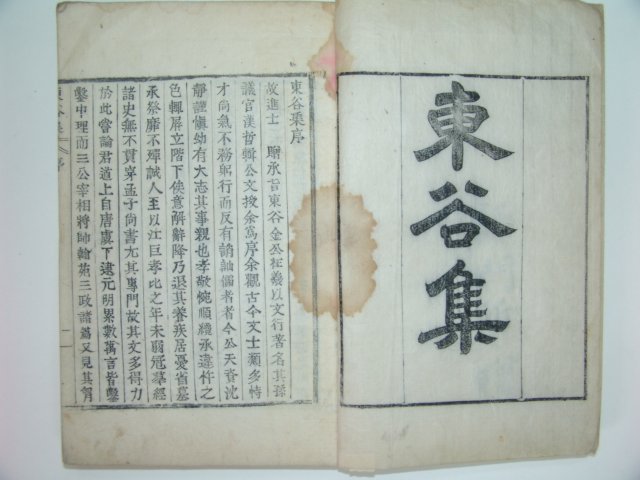 東谷集
東谷集序
故進士 贈承旨東谷金公征義以文行著名其孫
議官漢哲輯公文授余爲序余觀古今文士類多恃
才尙氣不務躬行而反有誚訕儒者者今公天資沈
靜謹愼幼有大志其事親也孝敬惋順纔承違忤之
色輒屛立階下俟意解辭降乃退其養疾居憂省墓
承祭靡不殫誠人至以江巨孝比之年未弱冠慕經
諸史無不貫穿孟子尙書尤其專門故其文多得力
於此嘗論君道上自唐虞下逮元明累數萬言皆鑿
鑿中理而三公宰相將帥翰苑三政諸篇又見其胷
東谷集 序 一